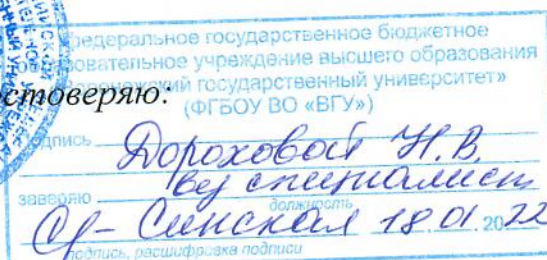 федеральное государственное бюджетное
образовательное учреждение высшего образования
«Воронежский государственный университет»
(ФГБОУ ВО «ВГУ»)
достоверяю:
подпись Дороховой Н.В.
заверяю вед специалист
должность
Синская 18.01.2022
подпись, расшифровка подписи